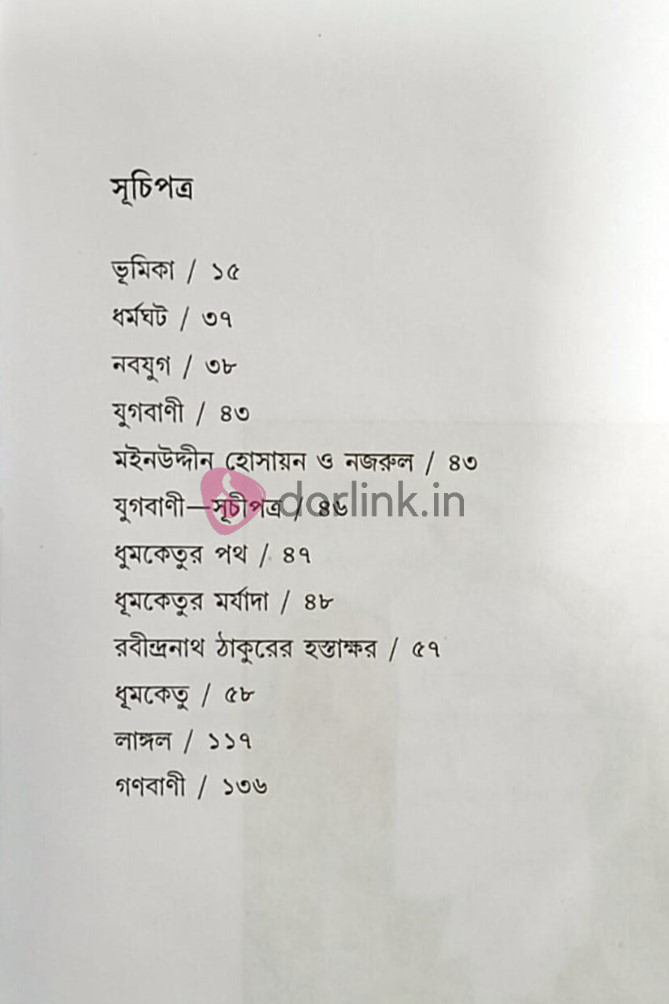 সূচিপত্র
ভূমিকা / ১৫
ধর্মঘট / ৩৭
নবযুগ / ৩৮
যুগবাণী / ৪৩
মইনউদ্দীন হোসায়ন ও নজরুল / ৪৩
যুগবাণী—সূচীপত্র / ৪৬
ধুমকেতুর পথ / ৪৭
ধূমকেতুর মর্যাদা / ৪৮
রবীন্দ্রনাথ ঠাকুরের হস্তাক্ষর / ৫৭
ধূমকেতু / ৫৮
লাঙ্গল / ১১৭
গণবাণী / ১৩৬
dorlink.in